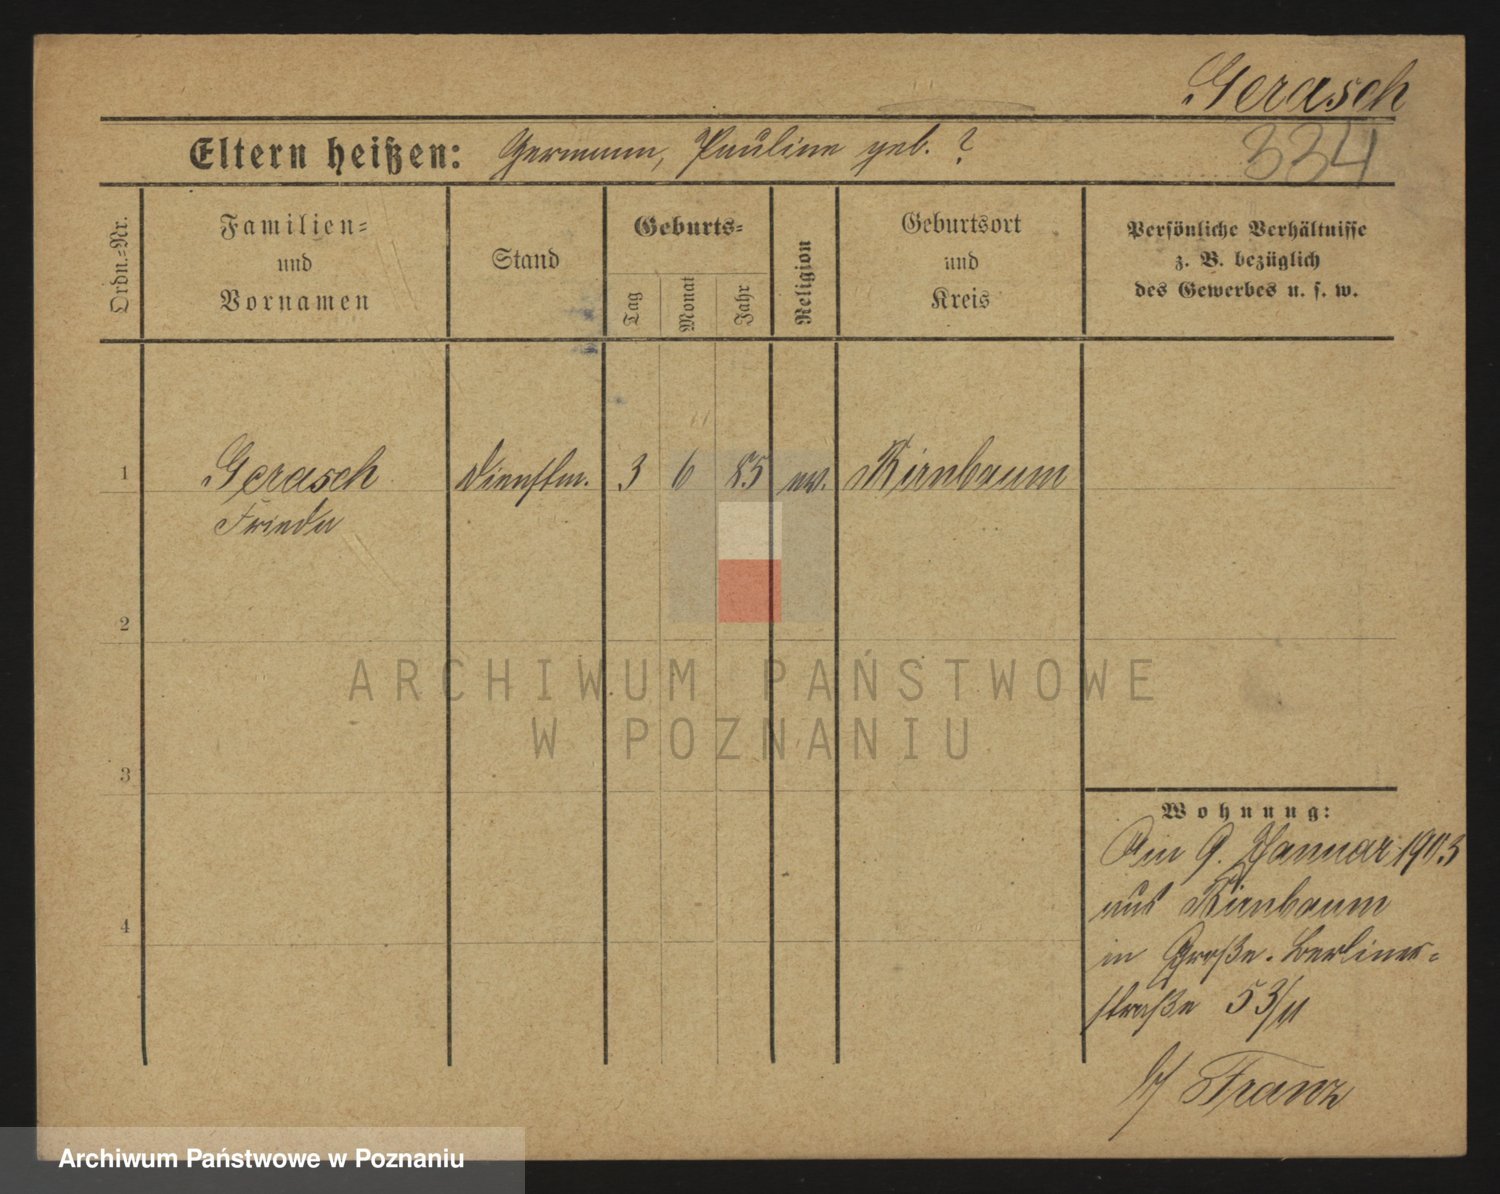 Gerasch
334
Eltern heißen: Hermann, Pauline geb. ?
Ordn.-Nr.
Familien-
und
Vornamen
Stand
Geburts-
Tag
Monat
Jahr
Religion
Geburtsort
und
Kreis
Persönliche Verhältnisse
z. B. bezüglich
des Gewerbes u. s. w.
1 Gerasch Dienstm. 3 6 85 ev. Birnbaum
Frieda
2
3
4
ARCHIWUM PAŃSTWOWE
W POZNANIU
Wohnung:
Am 9. Januar 1903
aus Birnbaum
in Große-Berliner-
straße 53/II
b/ Franz
Archiwum Państwowe w Poznaniu